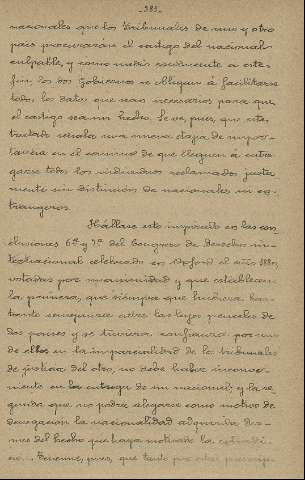 -383-
nacionales que los Tribunales de uno y otro
pais procurarán el castigo del nacional
culpable, y como medio conducente a este
fin, los dos Gobiernos se obligan á facilitarse
todos los datos que sean necesarios para que
el castigo sea un hecho. Se ve, pues, que este
tratado señala una nueva etapa de impor-
tancia en el camino de que lleguen á entre
garse todos los individuos reclamados justa
mente sin distinción de nacionales ni ex-
trangeros.
Hállase esto inspirado en las con
clusiones 6ª y 7ª del Congreso de Derecho in-
ternacional celebrado en Oxford el año 1880
votadas por unanimidad y que establecen
la primera, que siempre que hubiera bas-
tante semejanza entre las leyes penales de
dos paises y se tuviera confianza por uno
de ellos en la imparcialidad de los tribunales
de justicia del otro, no debe haber inconve-
niente en la entrega de un nacional; y la se-
gunda que no podrá alegarse como motivo de
denegación la nacionalidad adquirida des-
pues del hecho que haya motivado la
Tenemos, pues, que tanto por estos